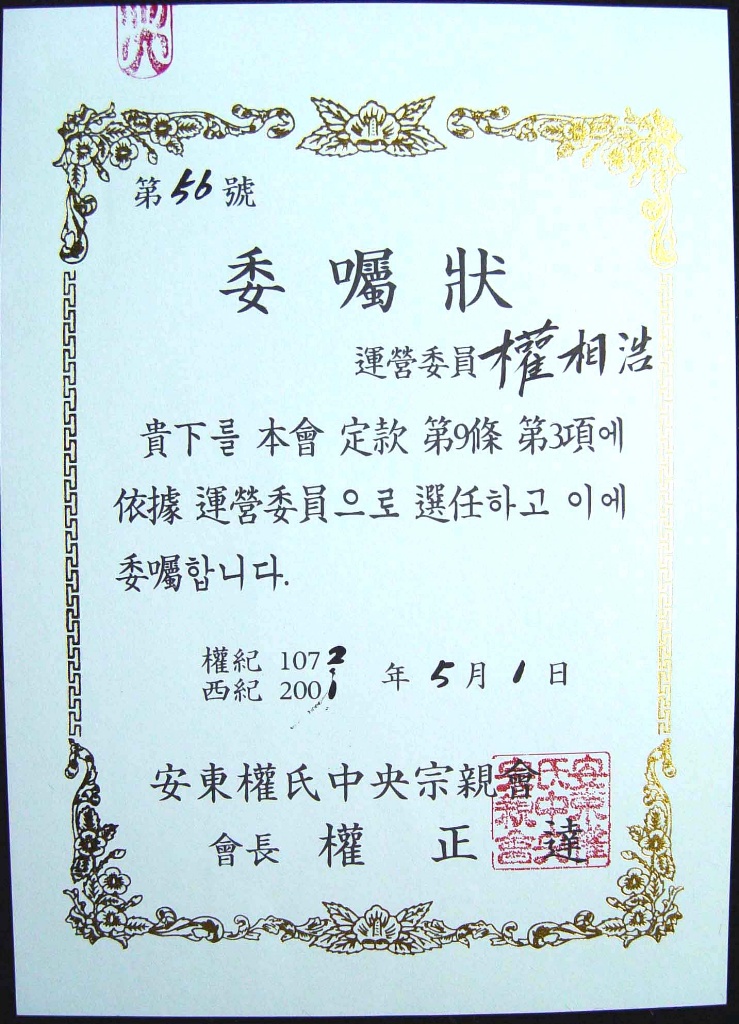 第56號
委囑狀
運營委員 權相浩
貴下를 本會 定款 第9條 第3項에
依據 運營委員으로 選任하고 이에
委囑합니다.
權紀 1072
西紀 2001 年 5月 1日
安東權氏中央宗親會
會長 權正達
安東權氏中央宗親會